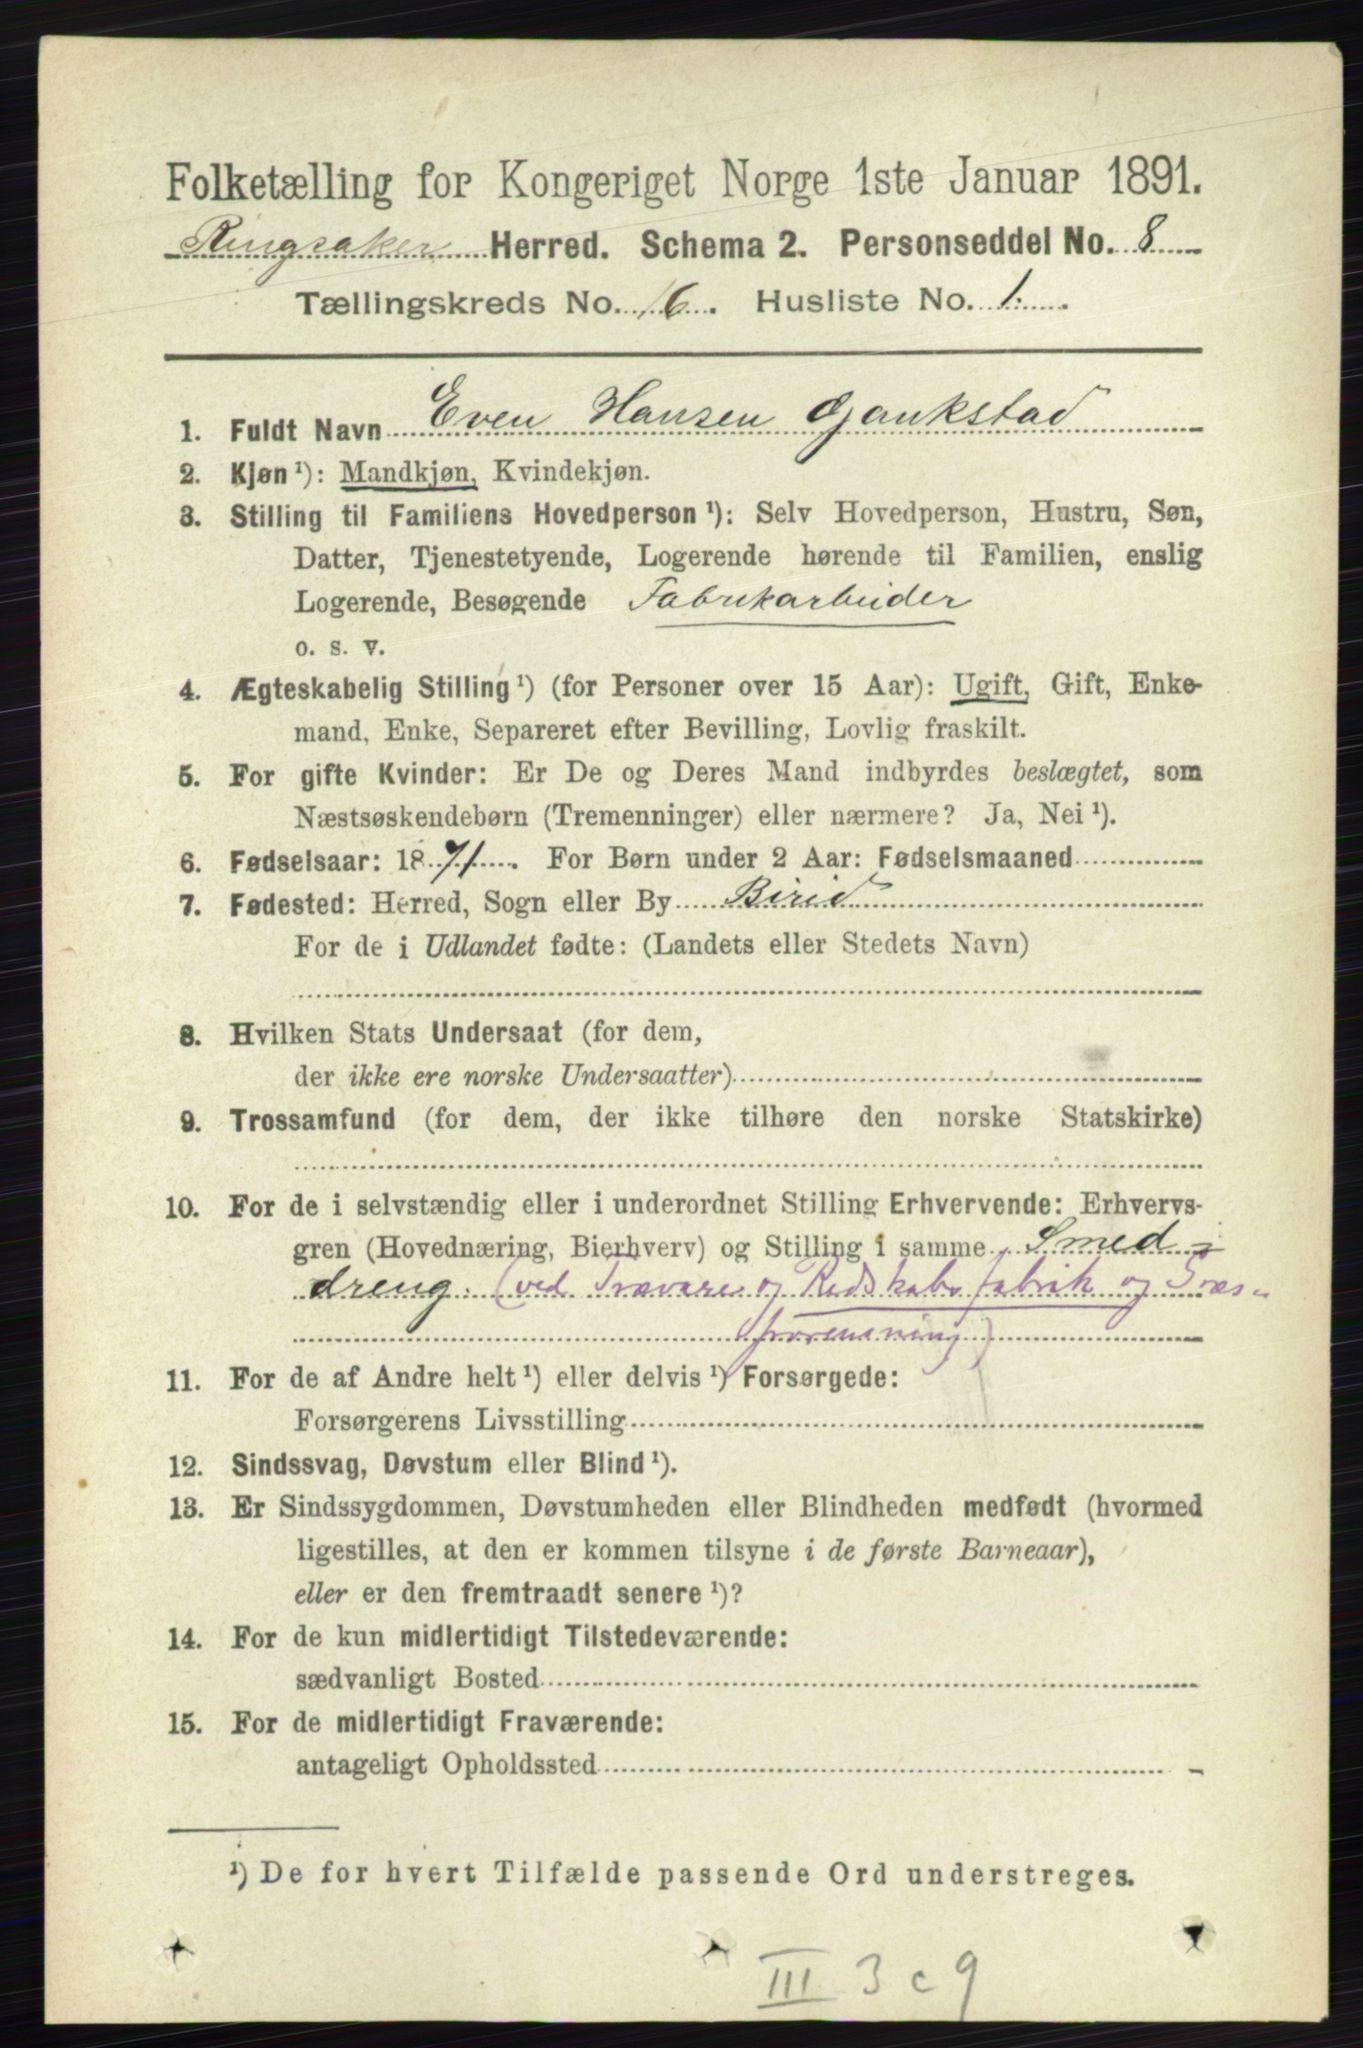 Folketælling for Kongeriget Norge 1ste Januar 1891.
Ringsaker Herred. Schema 2. Personseddel No. 8
Tællingskreds No. 16. Husliste No. 1.
1. Fuldt Navn Even Hansen Gjankstad
2. Kjøn ¹): Mandkjøn, Kvindekjøn.
3. Stilling til Familiens Hovedperson ¹): Selv Hovedperson, Hustru, Søn,
Datter, Tjenestetyende, Logerende hørende til Familien, enslig
Logerende, Besøgende Fabrikarbeider
o. s. v.
4. Ægteskabelig Stilling ¹) (for Personer over 15 Aar): Ugift, Gift, Enke-
mand, Enke, Separeret efter Bevilling, Lovlig fraskilt.
5. For gifte Kvinder: Er De og Deres Mand indbyrdes beslægtet, som
Næstsøskendebørn (Tremenninger) eller nærmere? Ja, Nei ¹).
6. Fødselsaar: 1871. For Børn under 2 Aar: Fødselsmaaned
7. Fødested: Herred, Sogn eller By Birid
For de i Udlandet fødte: (Landets eller Stedets Navn)
8. Hvilken Stats Undersaat (for dem,
der ikke ere norske Undersaatter)
9. Trossamfund (for dem, der ikke tilhøre den norske Statskirke)
10. For de i selvstændig eller i underordnet Stilling Erhvervende: Erhvervs-
gren (Hovednæring, Bierhverv) og Stilling i samme Smed-
dreng. (ved Trævare og Redskabsfabrik og
11. For de af Andre helt ¹) eller delvis ¹) Forsørgede:
Forsørgerens Livsstilling
12. Sindssvag, Døvstum eller Blind ¹).
13. Er Sindssygdommen, Døvstumheden eller Blindheden medfødt (hvormed
ligestilles, at den er kommen tilsyne i de første Barneaar),
eller er den fremtraadt senere ¹)?
14. For de kun midlertidigt Tilstedeværende:
sædvanligt Bosted
15. For de midlertidigt Fraværende:
antageligt Opholdssted
¹) De for hvert Tilfælde passende Ord understreges.
III 3 c 9